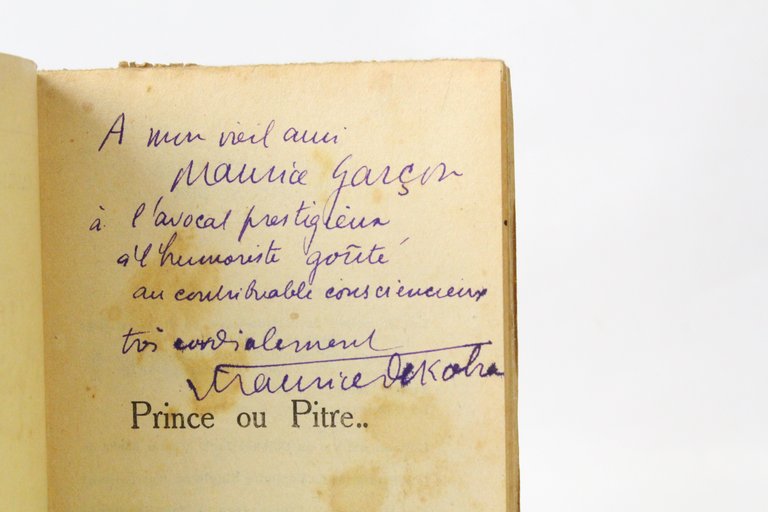 A mon vieil ami
Maurice Garçon
à l'avocat prestigieux
à l'humoriste goûté
au contribuable consciencieux
très cordialement
Maurice Dekobra
Prince ou Pitre..